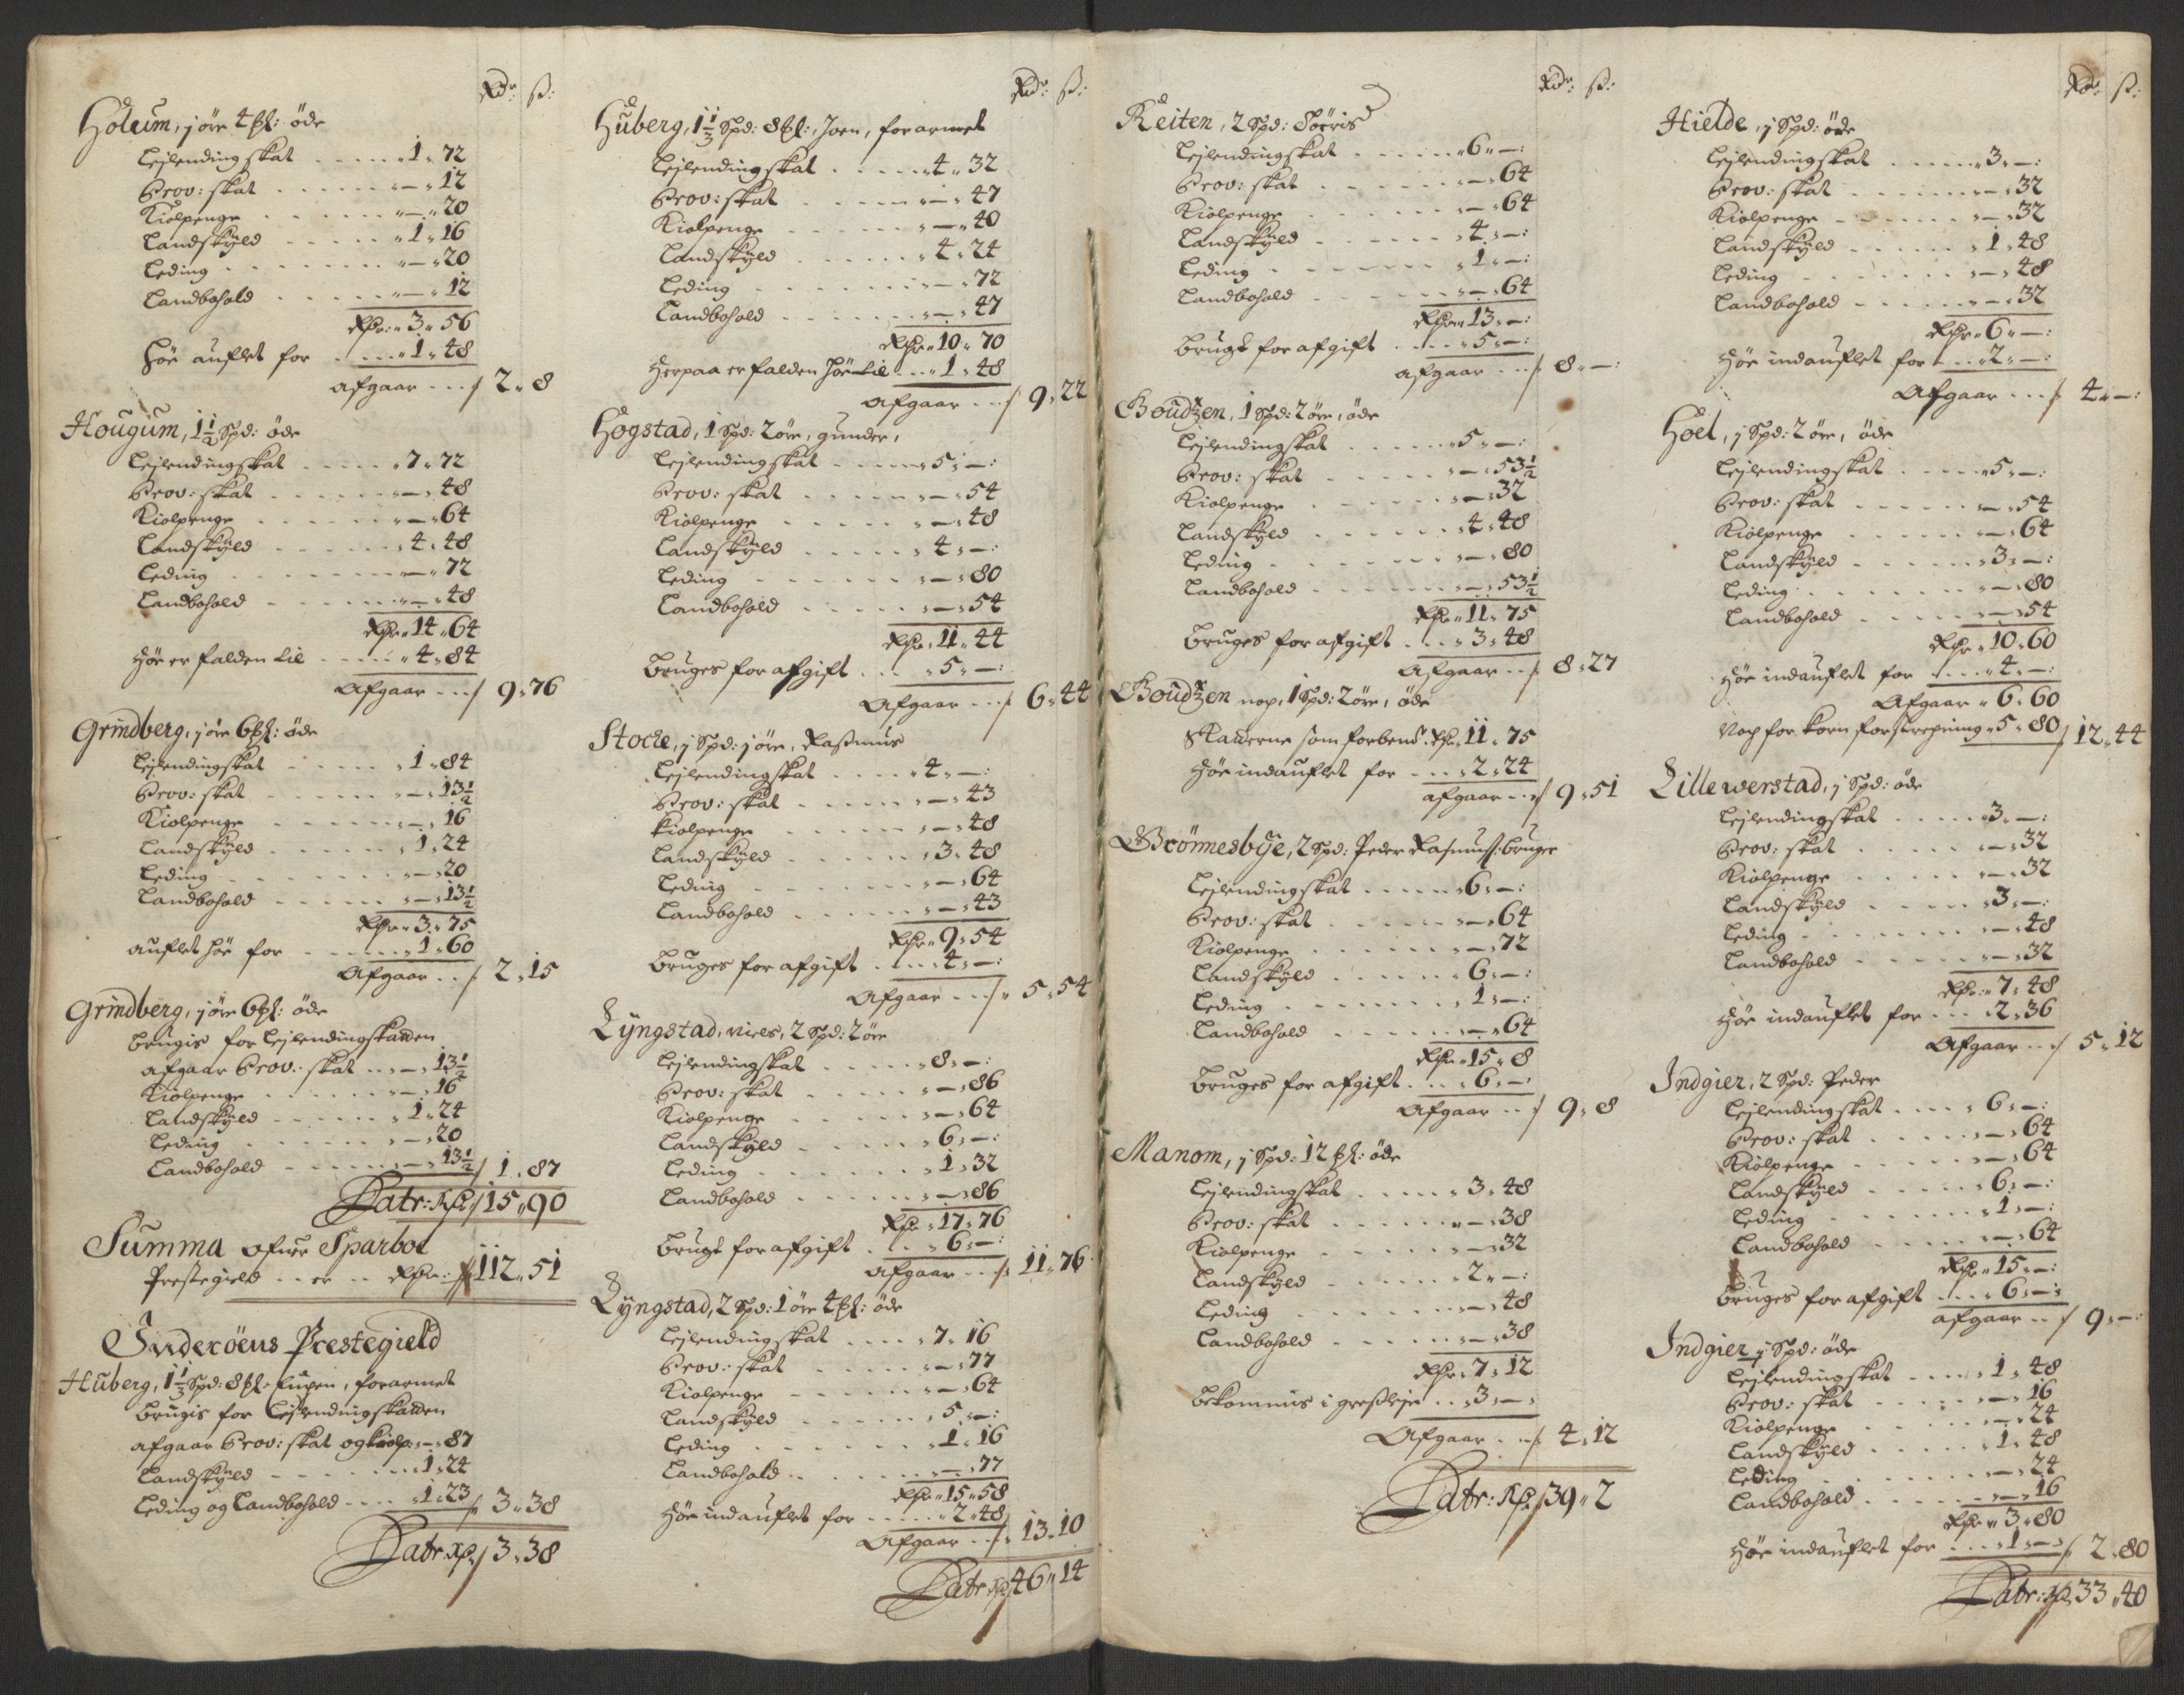 Rdr: ß:
Holeum, j öre 4 ℔: öde
Leilendingskat . . . . 1 " 72
Prov: skat . . . . " — " 12
Kiölpenge . . . . " — " 20
Landskÿld . . . . " 1 " 16
Leding . . . . " — " 20
Landbohold . . . . " — " 12
Rdr: " 3 " 56
höe auslet for . . . . " 1 " 48
afgaar . . . 2 " 8
Hougum, 1½ Spd: öde
Leilendingskat . . . . " 7 " 72
Prov: skat . . . . " — " 48
Kiölpenge . . . . " — " 64
Landskÿld . . . . " 4 " 48
Leding . . . . " — " 72
Landbohold . . . . " — " 48
Rdr " 14 " 64
höe er falden til . . . . " 4 " 84
Afgaar . . . 9 " 76
Grindberg, j öre 6 ℔: öde
Leilendingskat . . . . " 1 " 84
Prov: skat . . . . " — " 13½
Kiölpenge . . . . " — " 16
Landskÿld . . . . " 1 " 24
Leding . . . . " — " 20
Landbohold . . . . " — " 13½
Rdr " 3 " 75
auslet höe for . . . . " 1 " 60
Afgaar . . 2 " 15
Grindberg, j öre 6 ℔: öde
brugis for Leilendingskatten
afgaar Prov: skat . . " — " 13½
Kiölpenge . . . . " — " 16
Landskÿld . . . . " 1 " 24
Leding . . . . " — " 20
Landbohold . . . . " — " 13½ 1 " 87
Latr: Rdr 15 " 90
Summa ofuer Sparboe
Prestegield . . er . . Rdr: 112 " 51
Inderöens Prestegield
Huberg, 1⅓ Spd: 8 ℔ , forarmet
brugis for Leilendingskatten
afgaar Prov: skat og kiölp: " — " 87
Landskÿld . . . . " 1 " 24
Leding og Landbohold . . . . " 1 " 23 3 " 38
Latr: Rdr 3 " 38
Rdr: ß:
Huberg, 1⅓ Spd: 8 ℔:, Joen, forarmet
Leilendingskat . . . . " 4 " 32
Prov: skat . . . . " — " 47
Kiölpenge . . . . " — " 40
Landskÿld . . . . " 4 " 24
Leding . . . . " — " 72
Landbohold . . . . " — " 47
Rdr " 10 " 70
Herpaa er falden höe til . . . " 1 " 48
Afgaar . . . 9 " 22
Hogstad, 1 Spd: 2 öre, gunder,
Leilendingskat . . . . " 5 " — :
Prov: skat . . . . " — " 54
Kiölpenge . . . . " — " 48
Landskÿld . . . . " 4 " — :
Leding . . . . " — " 80
Landbohold . . . . " — " 54
Rdr " 11 " 44
bruges for afgift . . . " 5 " — :
Afgaar . . . 6 " 44
Stoche, j Spd: j öre, Rasmus
Leilendingskat . . . . " 4 " — :
Prov: skat . . . . " — " 43
Kiolpenge . . . . " — " 48
Landskÿld . . . . " 3 " 48
Leding . . . . " — " 64
Landbohold . . . . " — " 43
Rdr " 9 " 54
bruges for afgift . . . . " 4 " — :
Afgaar . . . 5 " 54
Lÿngstad, niels, 2 Spd: 2 öre
Leilendingskat . . . . " 8 " — :
Prov: skat . . . . " — " 86
Kiölpenge . . . . " — " 64
Landskÿld . . . . " 6 " — :
Leding . . . . " 1 " 32
Landbohold . . . . " — " 86
Rdr " 17 " 76
brugt for afgift . . . " 6 " — :
Afgaar . . . 11 " 76
Lÿngstad, 2 Spd: 1 öre 4 ℔: öde
Leilendingskat . . . . " 7 " 16
Prov: skat . . . . " — " 77
Kiölpenge . . . . " — " 64
Landskÿld . . . . " 5 " — :
Leding . . . . " 1 " 16
Landbohold . . . . " — " 77
Rdr " 15 " 58
höe indauslet for . . . . " 2 " 48
Afgaar . . . 13 " 10
Latr: Rdr 46 " 14
Rdr: ß:
Reiten, 2 Spd: Joeris
Leilendingskat . . . . " 6 " — :
Prov: skat . . . . " — " 64
Kiölpenge . . . . " — " 64
Landskÿld . . . . " 4 " — :
Leding . . . . " 1 " — :
Landbohold . . . . " — " 64
Rdr " 13 " — :
brugt for afgift . . . . " 5 " — :
afgaar . . . 8 " — :
Boudtzen, 1 Spd: 2 öre, öde
Leilendingskat . . . . " 5 " — :
Prov: skat . . . . " — " 53½
Kiölpenge . . . . " — " 32
Landskÿld . . . . " 4 " 48
Leding . . . . " — " 80
Landbohold . . . . " — " 53½
Rdr " 11 " 75
bruges for afgift . . . " 3 " 48
Afgaar . . 8 " 27
Boudtzen noch, 1 Spd: 2 öre, öde
Skatterne som forbend: Rdr " 11 " 75
höe indauslet for . . . " 2 " 24
afgaar . . . 9 " 51
Brönnesbÿe, 2 Spd: Peder Rasmuss: bruger
Leilendingskat . . . . " 6 " — :
Prov: skat . . . . " — " 64
Kiölpenge . . . . " — " 72
Landskÿld . . . . " 6 " — :
Leding . . . . " 1 " — :
Landbohold . . . . " — " 64
Rdr " 15 " 8
bruges for afgift . . . . " 6 " — :
Afgaar . . . 9 " 8
Manom, j Spd: 12 ℔: öde
Leilendingskat . . . . " 3 " 48
Prov: skat . . . . " — " 38
Kiölpenge . . . . " — " 32
Landskÿld . . . . " 2 " — :
Leding . . . . " — " 48
Landbohold . . . . " — " 38
Rdr " 7 " 12
bekommis i gresleje . . " 3 " — "
Afgaar . . . 4 " 12
Latr: Rdr 39 " 2
Rdr: ß:
Hielde, j Spd: öde
Leilendingskat . . . . " 3 " — :
Prov: skat . . . . " — " 32
Kiölpenge . . . . " — " 32
Landskÿld . . . . " 1 " 48
Leding . . . . " — " 48
Landbohold . . . . " — " 32
Rdr " 6 " — :
höe indauslet for . . . " 2 " — :
Afgaar . . . 4 " — :
Hoel, j Spd: 2 öre, öde
Leilendingskat . . . . " 5 " — :
Prov: skat . . . . " — " 54
Kiölpenge . . . . " — " 64
Landskÿld . . . . " 3 " — :
Leding . . . . " — " 80
Landbohold . . . . " — " 54
Rdr " 10 " 60
höe indauslet for . . . . " 4 " — :
Afgaar " 6 " 60
Noch for korn forstrechning " 5 " 80 12 " 44
Lille werstad, j Spd: öde
Leilendingskat . . . . " 3 " — :
Prov: skat . . . . " — " 32
Kiölpenge . . . . " — " 32
Landskÿld . . . . " 3 " — :
Leding . . . . " — " 48
Landbohold . . . . " — " 32
Rdr: " 7 " 48
höe indauslet for . . . " 2 " 36
Afgaar . . . 5 " 12
Indgier, 2 Spd: Peder
Leilendingskat . . . . " 6 " — :
Prov: skat . . . . " — " 64
Kiölpenge . . . . " — " 64
Landskÿld . . . . " 6 " — :
Leding . . . . " 1 " — :
Landbohold . . . . " — " 64
Rdr " 15 " — :
bruges for afgift . . . . " 6 " — :
afgaar . . 9 " — :
Indgier j Spd: öde
Leilendingskat . . . . " 1 " 48
Prov: skat . . . . " — " 16
Kiölpenge . . . . " — " 24
Landskÿld . . . . " 1 " 48
Leding . . . . " — " 24
Landbohold . . . . " — " 16
Rdr " 3 " 80
höe indauslet for . . . . " 1 " — " 2 " 80
Latr: Rdr 33 " 40